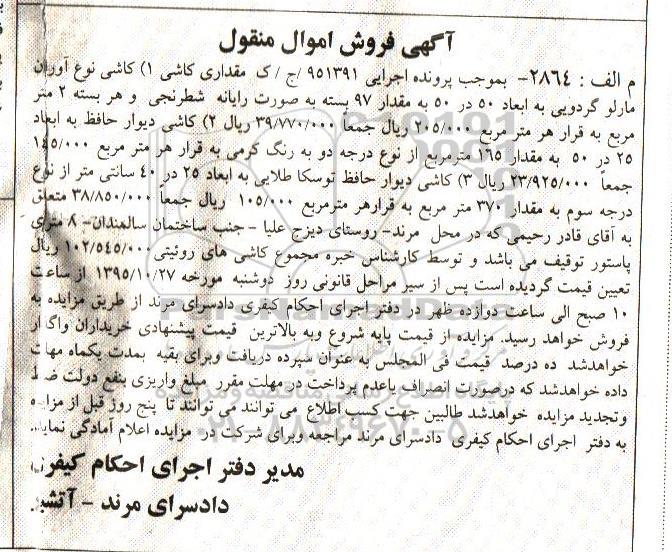 آگهی فروش اموال منقول
م الف : ۲۸۶۴- بموجب پرونده اجرایی ۹۵۱۳۹۱ /ج / ک مقداری کاشی ۱) کاشی نوع آوران
مارلو گردویی به ابعاد ۵۰ در ۵۰ به مقدار ۹۷ بسته به صورت رایانه شطرنجی و هر بسته ۲ متر
مربع به قرار هر متر مربع ۲۰۵/۰۰۰ ریال جمعا ۳۹/۷۷۰/۰۰۰ ریال ۲) کاشی دیوار حافظ به ابعاد
۲۵ در ۵۰ به مقدار ۱۶۵ مترمربع از نوع درجه دو به رنگ کرمی به قرار هر متر مربع ۱۴۵/۰۰۰
جمعاً ۲۳/۹۲۵/۰۰۰ ریال ۳) کاشی دیوار حافظ توسکا طلایی به ابعاد ۲۵ در ۴۰ سانتی متر از نوع
درجه سوم به مقدار ۳۷۰ متر مربع به قرارهر مترمربع ۱۰۵/۰۰۰ ریال جمعاً ۳۸/۸۵۰/۰۰۰ متعلق
به آقای قادر رحیمی که در محل مرند- روستای دیزج علیا - جنب ساختمان سالمندان- ۸ متری
پاستور توقیف می باشد و توسط کارشناس خبره مجموع کاشی های روئیتی ۱۰۲/۵۴۵/۰۰۰ ریال
تعیین قیمت گردیده است پس از سیر مراحل قانونی روز دوشنبه مورخه ۱۳۹۵/۱۰/۲۷ از ساعت
۱۰ صبح الی ساعت دوازده ظهر در دفتر اجرای احکام کیفری دادسرای مرند از طریق مزایده به
فروش خواهد رسید. مزایده از قیمت پایه شروع وبه بالاترین قیمت پیشنهادی خریداران واگذار
خواهدشد ده درصد قیمت فی المجلس به عنوان سپرده دریافت وبرای بقیه بمدت یکماه مهلت
داده خواهدشد که درصورت انصراف یاعدم پرداخت در مهلت مقرر مبلغ واریزی بنفع دولت ضبط
وتجدید مزایده خواهدشد طالبین جهت کسب اطلاع می توانند می توانند تا پنج روز قبل از مزایده
به دفتر اجرای احکام کیفری دادسرای مرند مراجعه وبرای شرکت در مزایده اعلام آمادگی نمایند.
مدیر دفتر اجرای احکام کیفری
دادسرای مرند - آتشبر